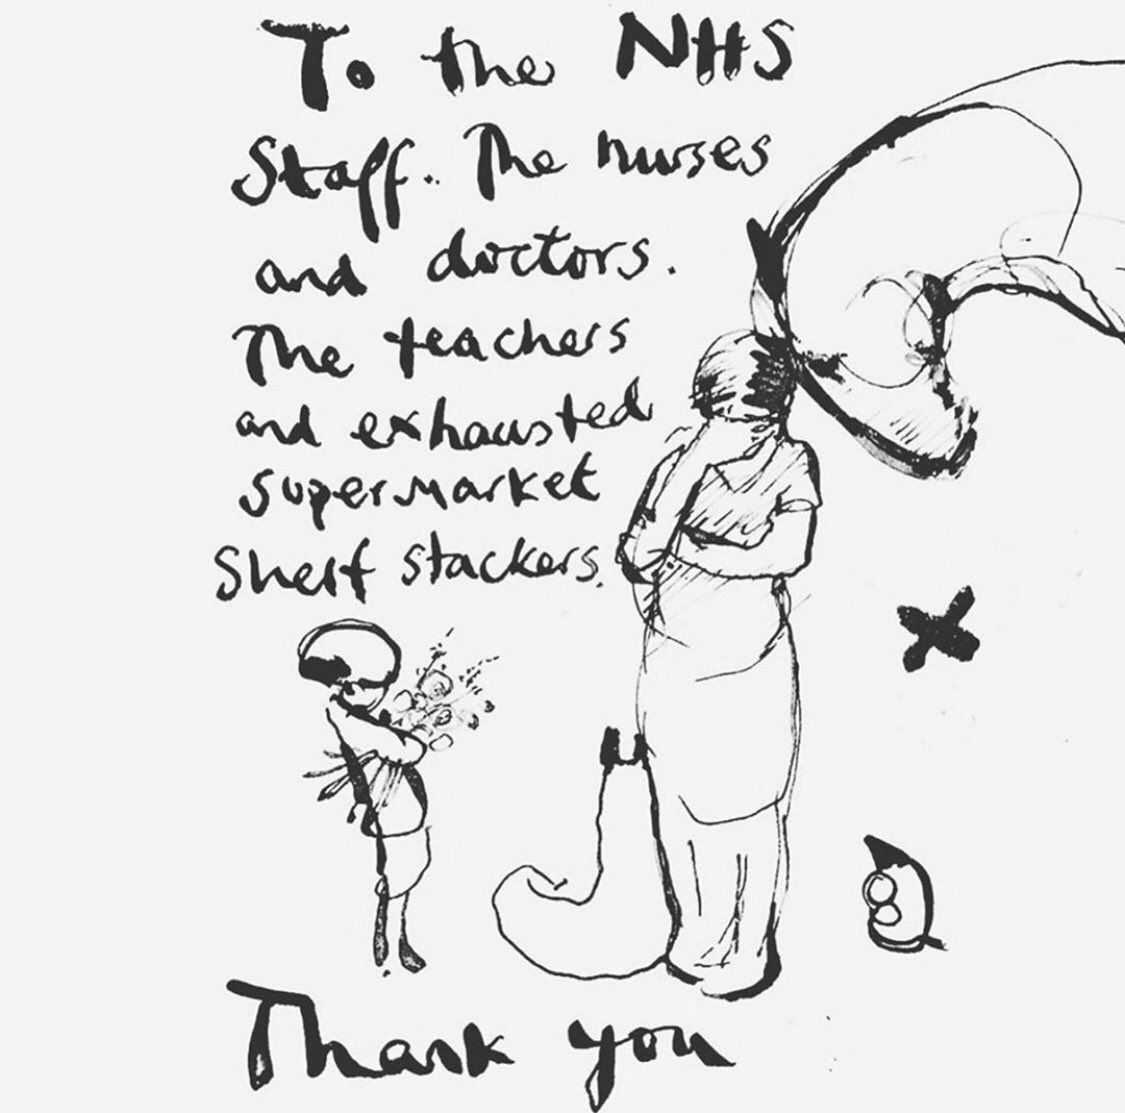 To the NHS
Staff.. The nurses
and doctors.
The teachers
and exhausted
supermarket
Shelf stackers.
Thank you